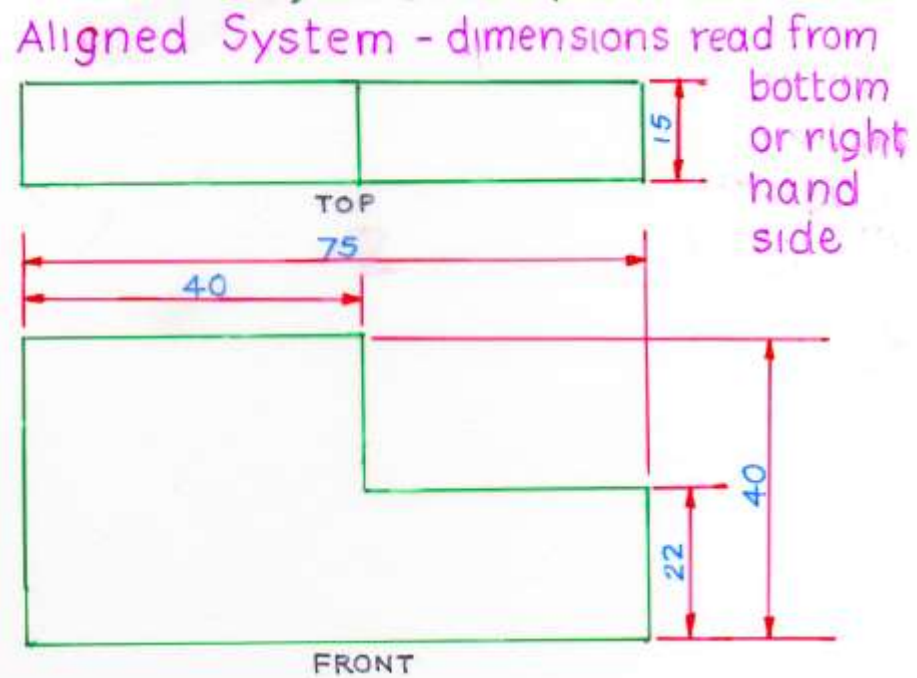 Aligned System - dimensions read from
bottom
or right
hand
side
15
TOP
75
40
40
22
FRONT